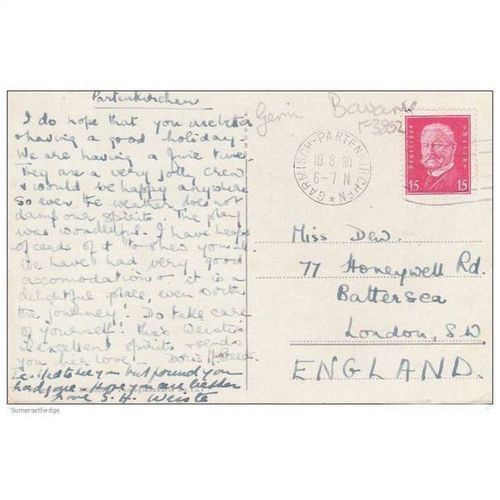 Partenkirchen
I do hope that you are better
& having a good holiday.
We are having a fine time
They are a very jolly crew
& would be happy anywhere
So even the weather does not
damp our spirits. The play
was wonderful. I have heaps
of cards of it to show you
We have had very good
accomodation & it is a
delightful place, even worth
the journey! Do take care
of yourself! Miss
is excellent spirits & sends
you her love. Doris
I called to see you but found you
had gone. Hope you are better
love S. H.
Germ Bavaria
F3852
GARMISCH-PARTENKIRCHEN
10 8 30
6-7 N
15 15
Miss Dew.
77 Honeywell Rd.
Battersea
London, S.W
ENGLAND.
Somersethedge